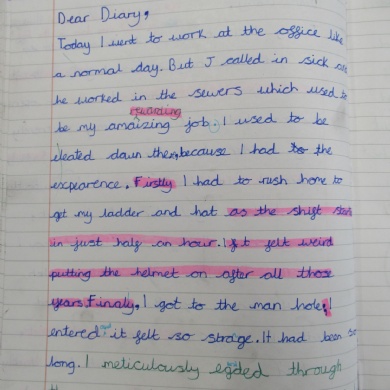 Dear Diary,
Today I went to work at the office like
a normal day. But J called in sick
he worked in the sewers which used to
rewarding
be my amaizing job. I used to be
down then, because I had to the
expearence. Firstly I had to rush home to
get my ladder and hat as the shift
in just half an hour. It felt weird
putting the helmet on after all those
years. Finaly, I got to the man hole, I
entered and it felt so strage. It had been so
long. I meticulously through